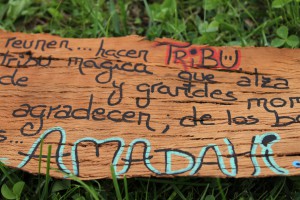 reunen... hacen TRIBU
tribu magica que alza
de y grandes mon
agradecen, de las bo
s... AMADAHI